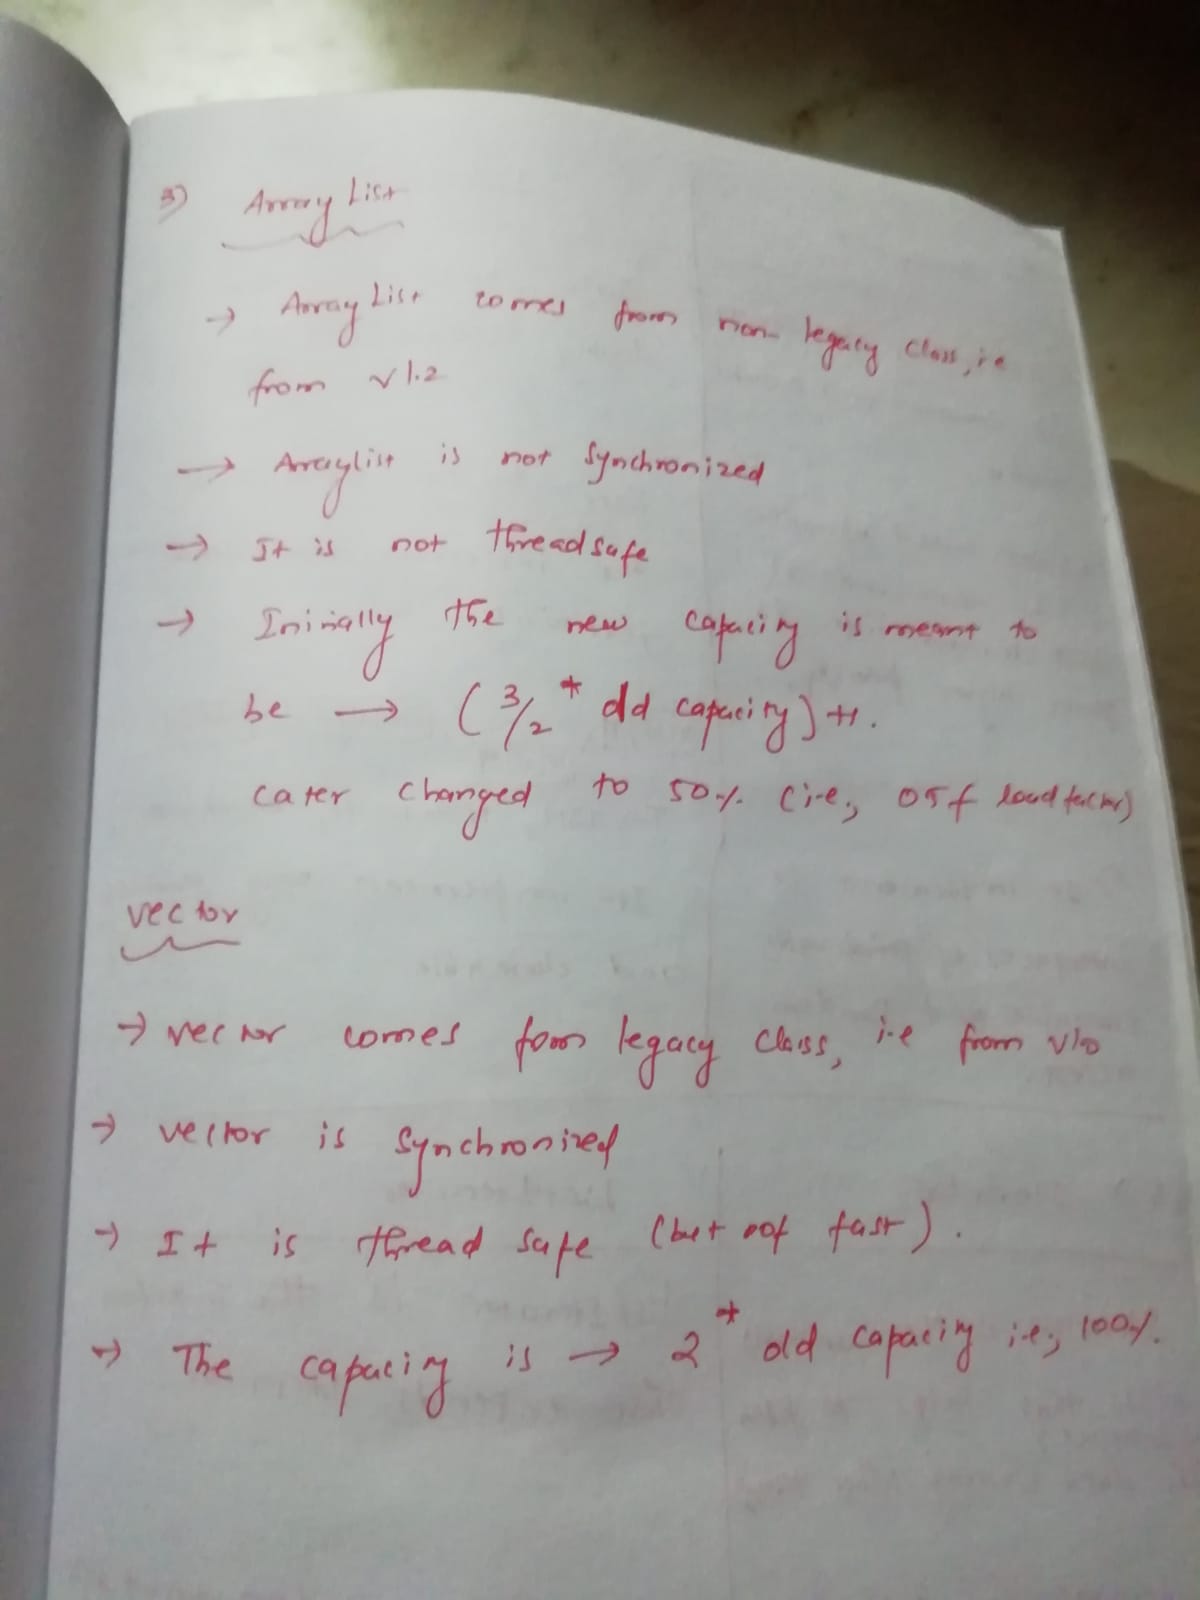 3) Array List
→ Array List comes from non-legacy class, i.e
from v1.2
→ Arraylist is not synchronized
→ It is not threadsafe
→ Ininally the new capacity is meant to
be → (3/2 * old capacity) +1.
Later changed to 50% (i.e., 05f load factor)
vector
→ vector comes from legacy class, i.e from v1.0
→ vector is synchronized
→ It is thread safe (but not fast).
→ The capacity is → 2 * old capacity i.e., 100%.